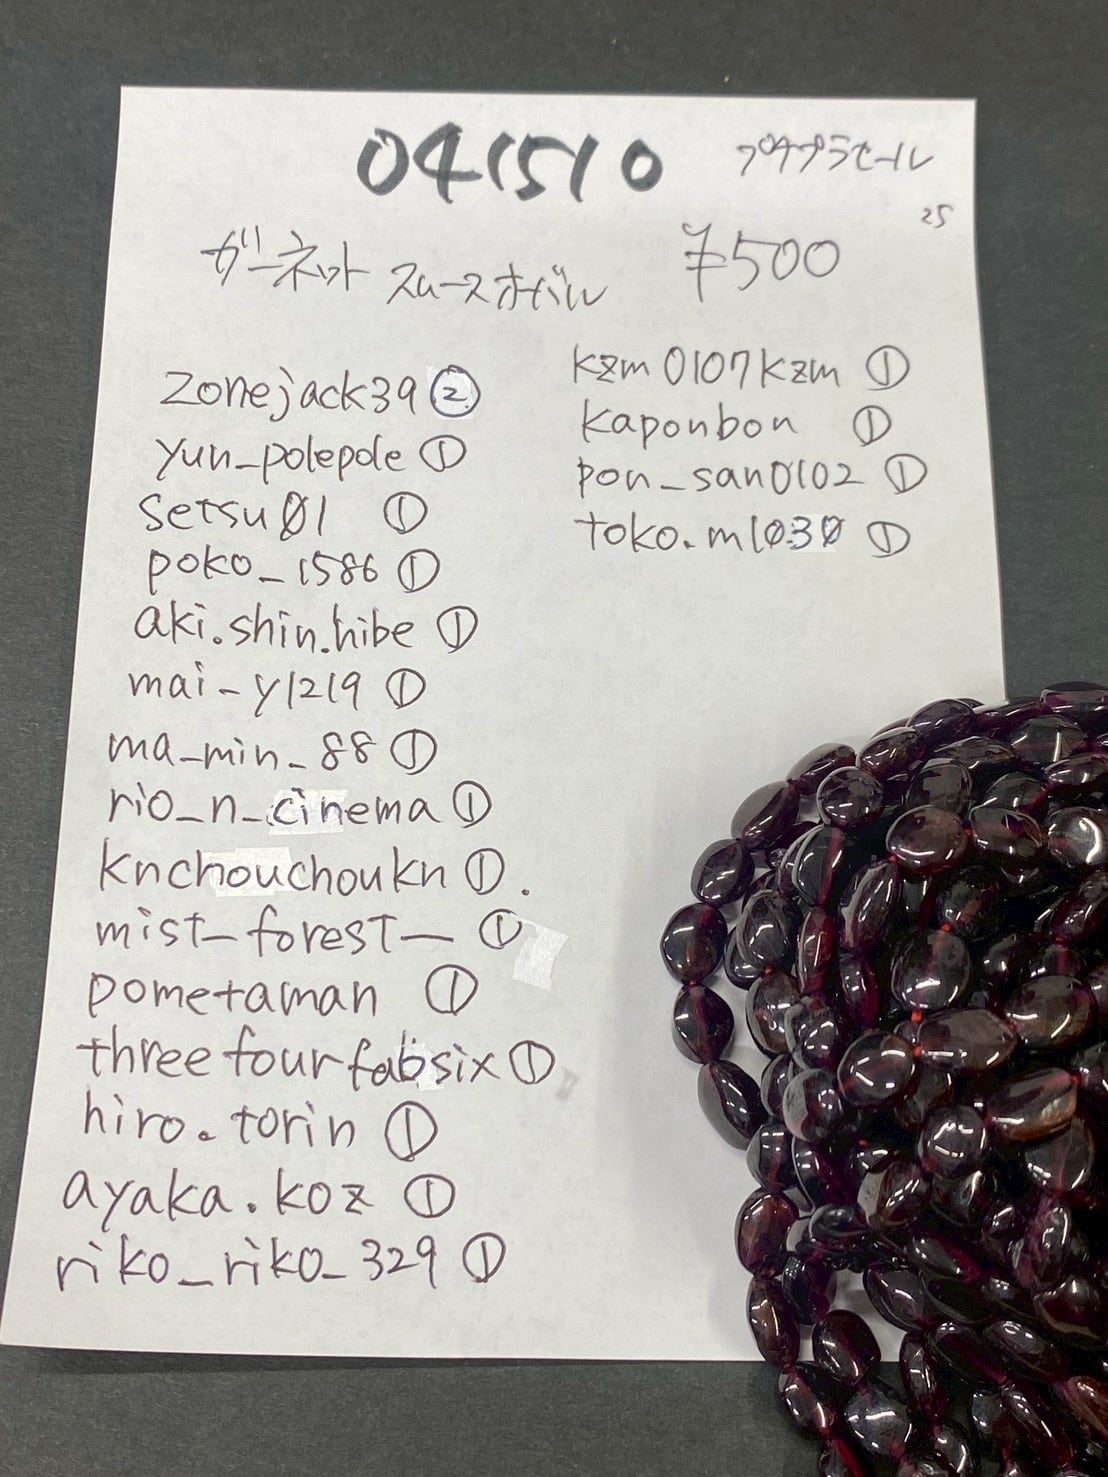 041510
プチプラセール
25
ガーネット スムースオーバル ¥500
zonejack39 ②
yun_polepole ①
setsu01 ①
poko_1586 ①
aki.shin.hibe ①
mai-y1219 ①
ma_min_88 ①
rio_n_cinema ①
knchouchoukn ①.
mist_forest_ ①
pometaman ①
threefourfabsix ①
hiro.torin ①
ayaka.koz ①
riko_riko_329 ①
kzm0107kzm ①
kaponbon ①
pon_san0102 ①
toko.m1030 ①